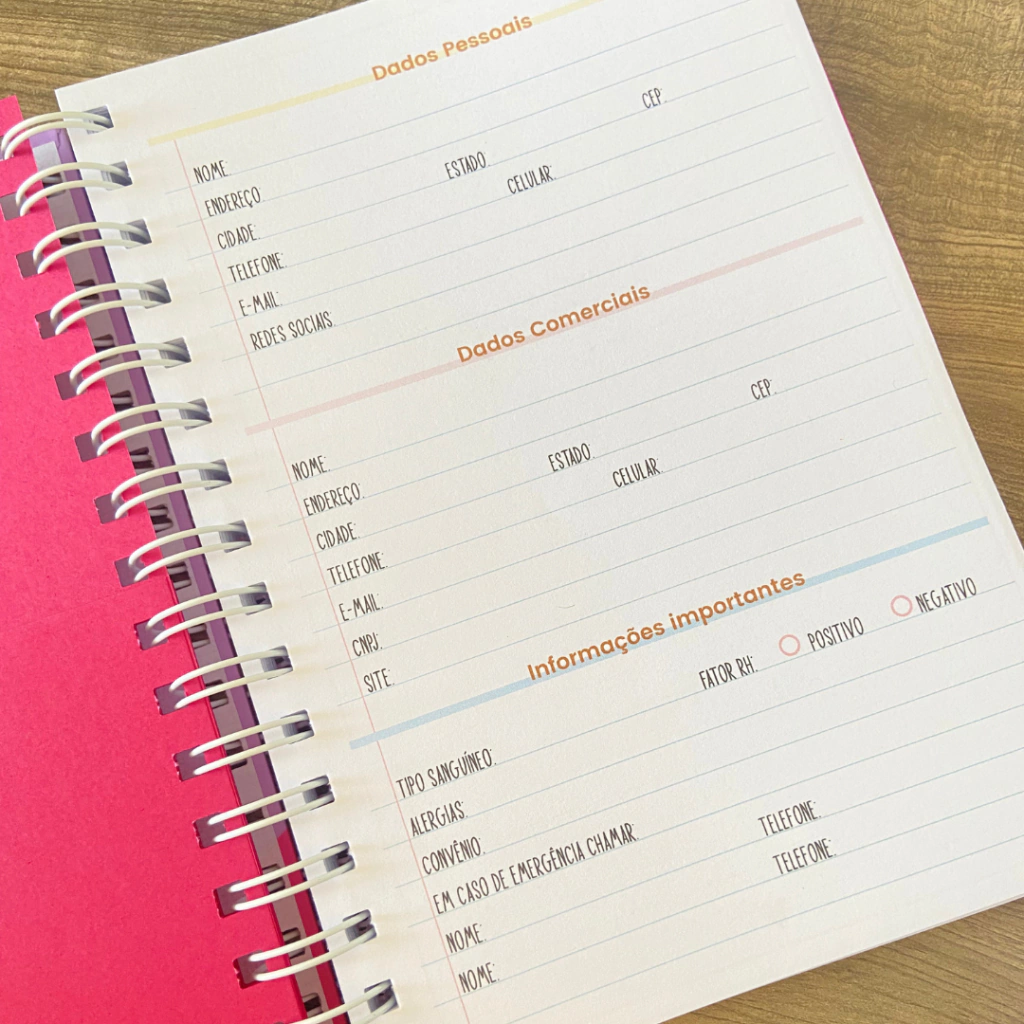 Dados Pessoais
NOME:
ENDEREÇO:
CIDADE: ESTADO: CEP:
TELEFONE: CELULAR:
E-MAIL:
REDES SOCIAIS:
Dados Comerciais
NOME:
ENDEREÇO:
CIDADE: ESTADO: CEP:
TELEFONE: CELULAR:
E-MAIL:
CNPJ:
SITE:
Informações importantes
TIPO SANGUÍNEO: FATOR RH: POSITIVO NEGATIVO
ALERGIAS:
CONVÊNIO:
EM CASO DE EMERGÊNCIA CHAMAR:
NOME: TELEFONE:
NOME: TELEFONE: